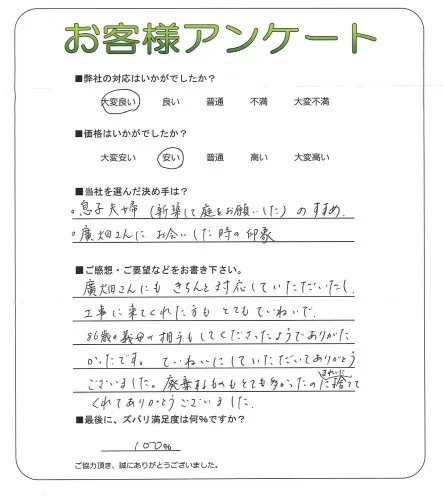 お客様アンケート
■弊社の対応はいかがでしたか?
大変良い 良い 普通 不満 大変不満
■価格はいかがでしたか?
大変安い 安い 普通 高い 大変高い
■当社を選んだ決め手は?
○息子夫婦(新築して庭をお願いした)のすすめ.
○廣畑さんに お会いした時の印象
■ご感想・ご要望などをお書き下さい。
廣畑さんにも きちんと対応していただいたし.
工事に来てくれた方も とてもていねいで.
86歳の義母の相手もしてくださったようでありがた
かったです。 ていねいにしていただいてありがとう
ございました。廃棄するものもとても多かったのに きれいに 捨てて
くれてありがとうございました.
■最後に、ズバリ満足度は何%ですか?
100%
ご協力頂き、誠にありがとうございました。